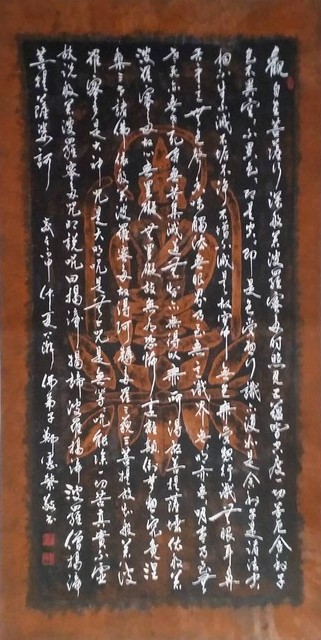 觀自在菩薩行深般若波羅蜜多時照見五蘊皆空度一切苦厄舍利子
色不異空空不異色色即是空空即是色受想行識亦復如是舍利子是諸法空
相不生不滅不垢不淨不增不減是故空中無色無受想行識無眼耳鼻
舌身意無色聲香味觸法無眼界乃至無意識界無無明亦無無明盡乃至無
老死亦無老死盡無苦集滅道無智亦無得以無所得故菩提薩埵依般若
波羅蜜多故心無罣礙無罣礙故無有恐怖遠離顛倒夢想究竟涅
槃三世諸佛依般若波羅蜜多故得阿耨多羅三藐三菩提故知般若波
羅蜜多是大神咒是大明咒是無上咒是無等等咒能除一切苦真實不虛
故說般若波羅蜜多咒即說咒曰揭諦揭諦波羅揭諦波羅僧揭諦
菩提薩婆訶 佛弟子 敬書